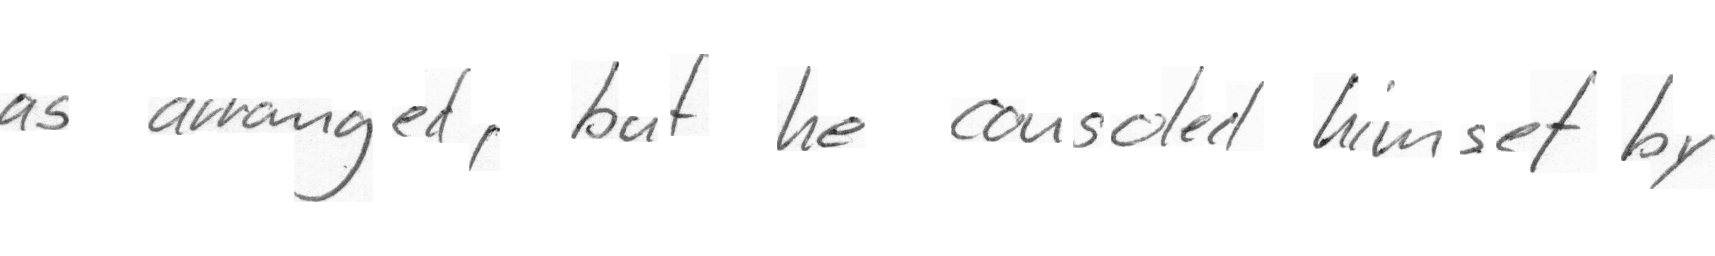 as arranged, but he consoled himself by